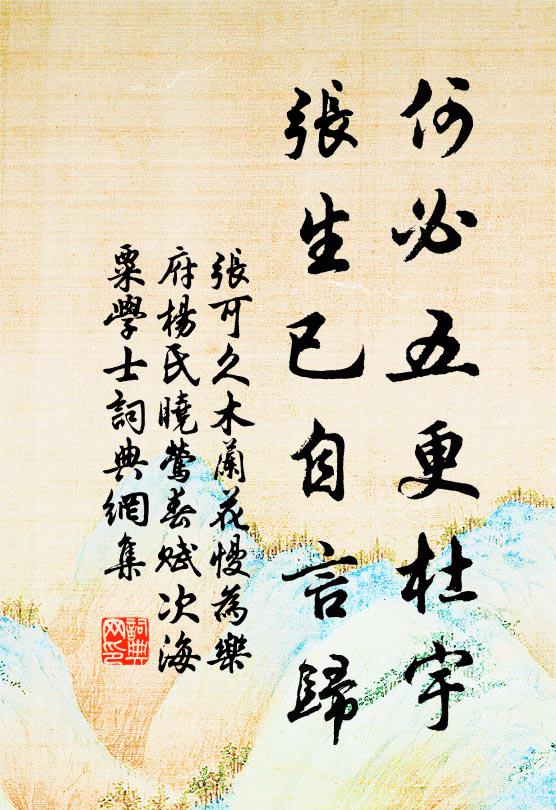 何必五更杜宇
張生已自言歸
張可久木蘭花慢為樂
府楊氏曉鶯春賦次海
粟學士詞典網集
詞典網印